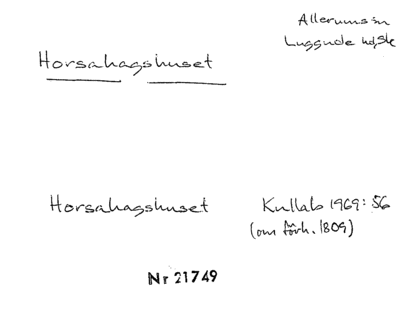 Allerums sn
Luggude hd, Sk
Horsahagshuset
Horsahagshuset Kullab 1969: 56
(om förh. 1809)
Nr 21749